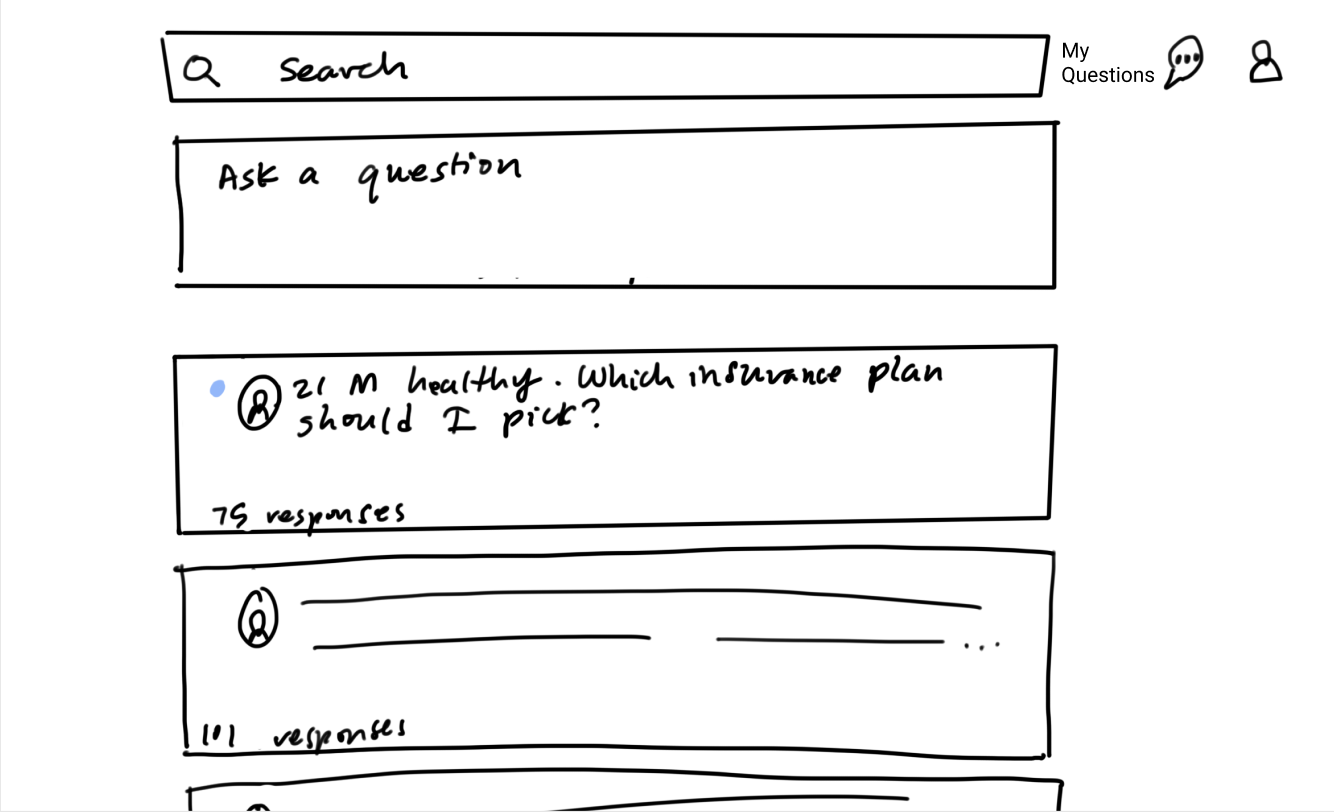 Search
My
Questions
Ask a question
21 M healthy. Which insurance plan
should I pick?
75 responses
101 responses